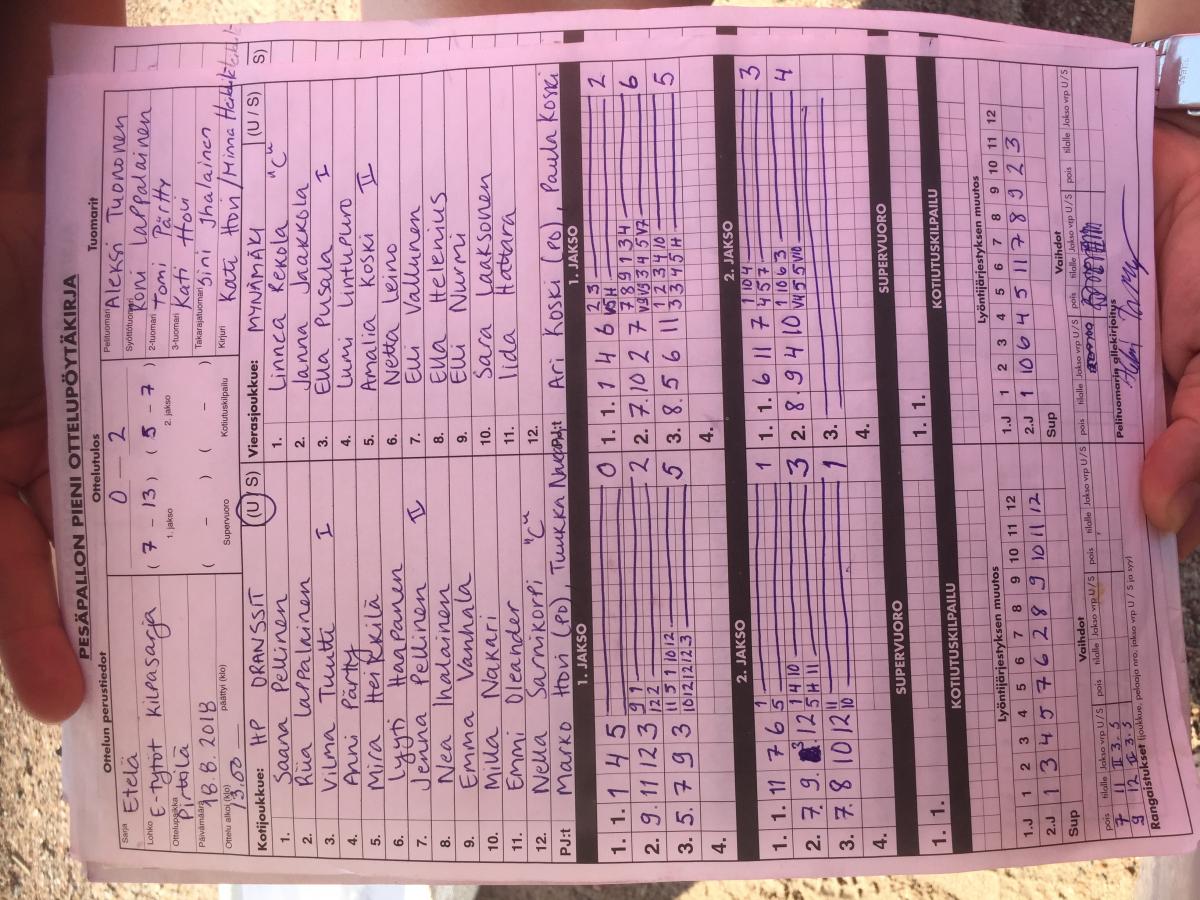 PESÄPALLON PIENI OTTELUPÖYTÄKIRJA
Ottelun perustiedot
Sarja Etelä
Lohko E-tytöt kilpasarja
Ottelupaikka Pirtilä
Päivämäärä 18.8.2018
Ottelu alkoi (klo) 13.00 päättyi (klo)
Ottelutulos
0 — 2
( 7 – 13 ) ( 5 – 7 )
1. jakso 2. jakso
( – ) ( – )
Supervuoro Kotiutuskilpailu
Tuomarit
Pelituomari Aleksi Tuononen
Syöttötuomari Roni Lappalainen
2-tuomari Tomi Pärtty
3-tuomari Kati Hovi
Takarajatuomari Sini Ihalainen
Kirjuri Kati Hovi / Minna
Kotijoukkue: HP ORANSSIT (U / S)
1. Saara Pellinen
2. Riia Lappalainen
3. Vilma Tuutti I
4. Anni Pärtty
5. Mira Heikkilä
6. Lyyti Hanpanen
7. Jenna Pellinen II
8. Nea Ihalainen
9. Emma Vanhala
10. Milla Nakari
11. Emmi Oleander
12. Nella Sarnikorpi "C"
PJ:t Marko Hovi (PO), Tuukka
Vierasjoukkue: MYNÄMÄKI (U / S)
1. Linnea Rekola "C"
2. Janna Jaakkola
3. Eva Pusala I
4. Lumi Lintupuro
5. Amalia Koski II
6. Netta Leino
7. Evli Vallunen
8. Ella Helenius
9. Elli Nurmi
10. Sara Laaksonen
11. Iida Hattara
12.
PJ:t Ari Koski (PO), Paula Koski
1. JAKSO
1. 1. 1 4 5 0
2. 9. 11 12 3 2
3. 5. 7 9 3 5
4.
1. JAKSO
1. 1. 1 4 6 2
2. 7. 10 2 7 6
3. 8. 5 6 11 5
4.
2. JAKSO
1. 1. 11 7 6 1
2. 7. 9. 12 3
3. 7. 8 10 12 1
4.
2. JAKSO
1. 1. 6 11 7 3
2. 8. 9 4 10 4
3.
4.
SUPERVUORO
1. 1.
SUPERVUORO
1. 1.
KOTIUTUSKILPAILU
KOTIUTUSKILPAILU
Lyöntijärjestyksen muutos
1.J 1 2 3 4 5 6 7 8 9 10 11 12
2.J 1 3 4 5 7 6 2 8 9 10 11 12
Sup
Lyöntijärjestyksen muutos
1.J 1 2 3 4 5 6 7 8 9 10 11 12
2.J 1 10 6 4 5 11 7 8 9 2 3
Sup
Vaihdot
pois tilalle Jakso vrp U/S pois tilalle Jakso vrp U/S pois tilalle Jakso vrp U/S
7 11 II 3. S
9 12 II 3. S
Vaihdot
pois tilalle Jakso vrp U/S pois tilalle Jakso vrp U/S pois tilalle Jakso vrp U/S
Rangaistukset (joukkue, pelaaja nro, jakso vrp U / S ja syy)
Pelituomarin allekirjoitus